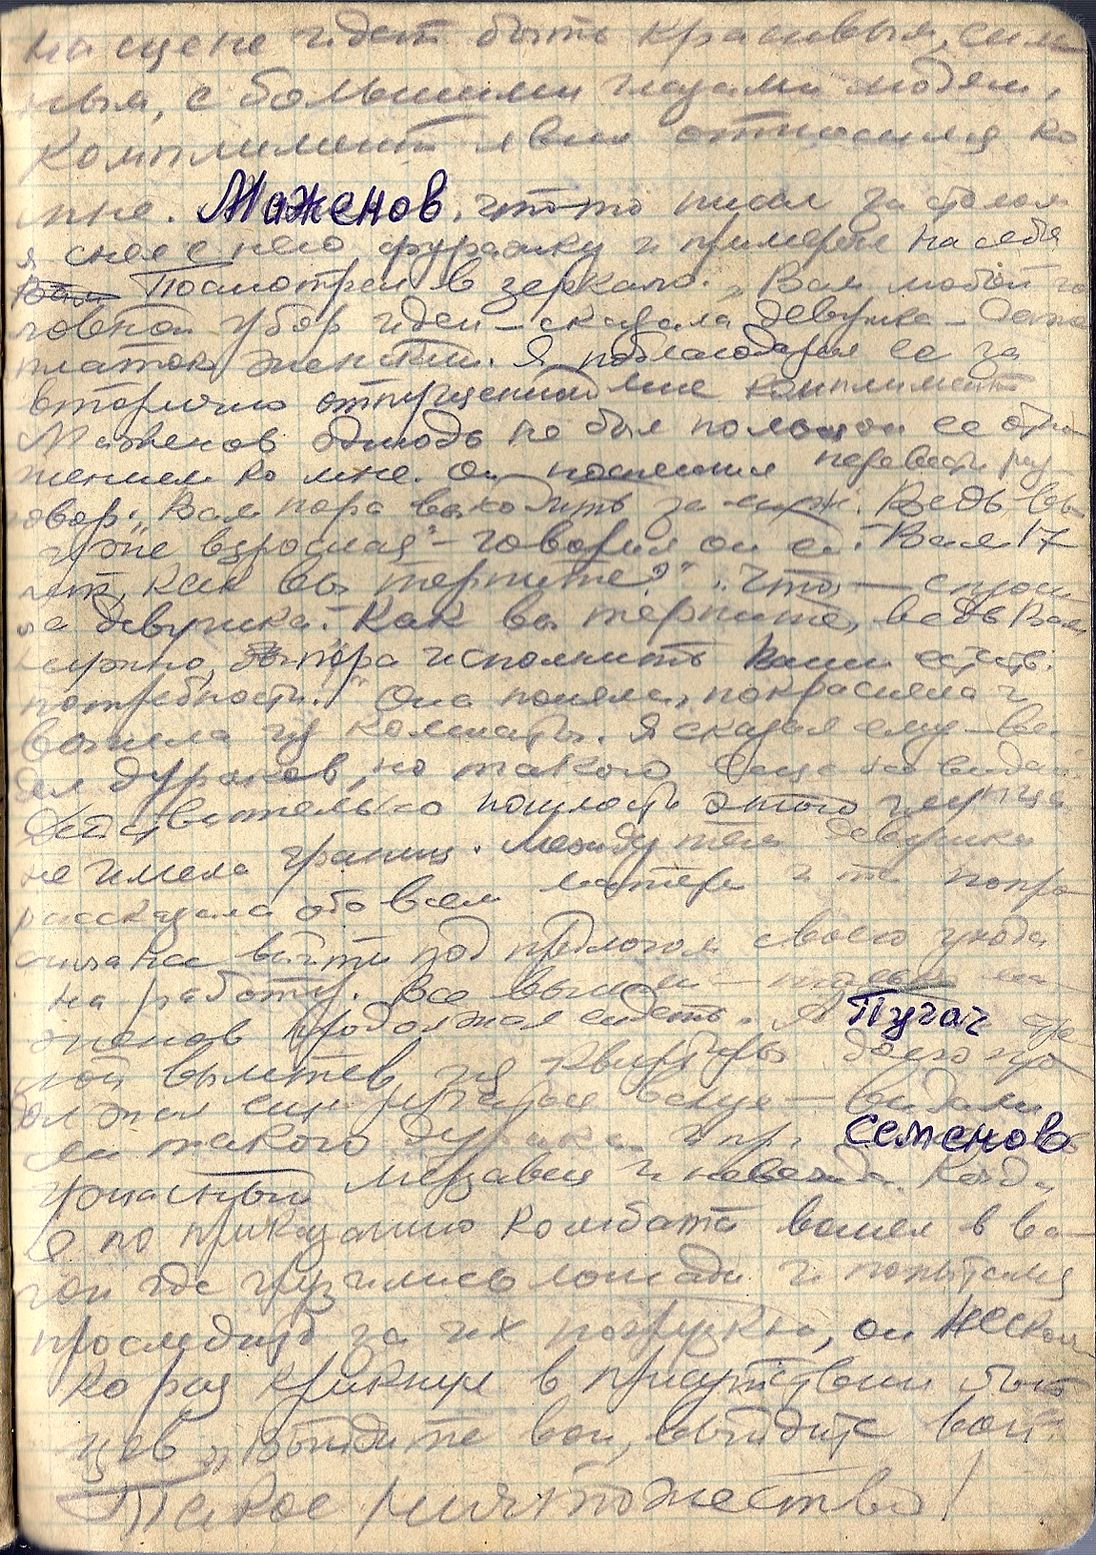 на сцене идет быть красивым, силь
ным, с большими глазами людям,
Комплимент явно относился ко
мне. Маженов что-то писал за столом
я снял с него фуражку и примерял на себя
Посмотрел в зеркало. „Вам любой го
ловной убор идет – сказала девушка – даже
платок женский. Я поблагодарил ее за
вторично отпущенный мне комплимент
Маженов отнюдь не был польщен ее отно
шением ко мне. Он поспешил перевести раз
говор: „Вам пора выходить за муж. Ведь вы
уже взрослая" – говорил он ей. Вам 17
лет, как вы терпите?" „Что, – спроси
ла девушка. – Как вы терпите, ведь Вам
нужно, пора исполнить ваши естеств.
потребности." Она поняла, покраснела и
вышла из комнаты. Я сказал ему – ви
дел дураков, но такого еще не видал.
Действительно пошлость этого глупца
не имела границ. Между тем девушка
рассказала обо всем матери и та попро
сила нас выйти под предлогом своего ухода
на работу. Все вышли – только Ма
женов продолжал сидеть. А Пугач
вылетев из квартиры долго про
должал еще – видали
ли такого дурака и пр. Семенов
ужасный мерзавец и невежда. Когда
я по приказанию комбата вошел в ва
гон где грузились лошади и попытался
проследить за их погрузкой, он несколь
ко раз крикнул в присутствии бой
цов „выйдите вон, выйдите вон".
Такое ничтожество!